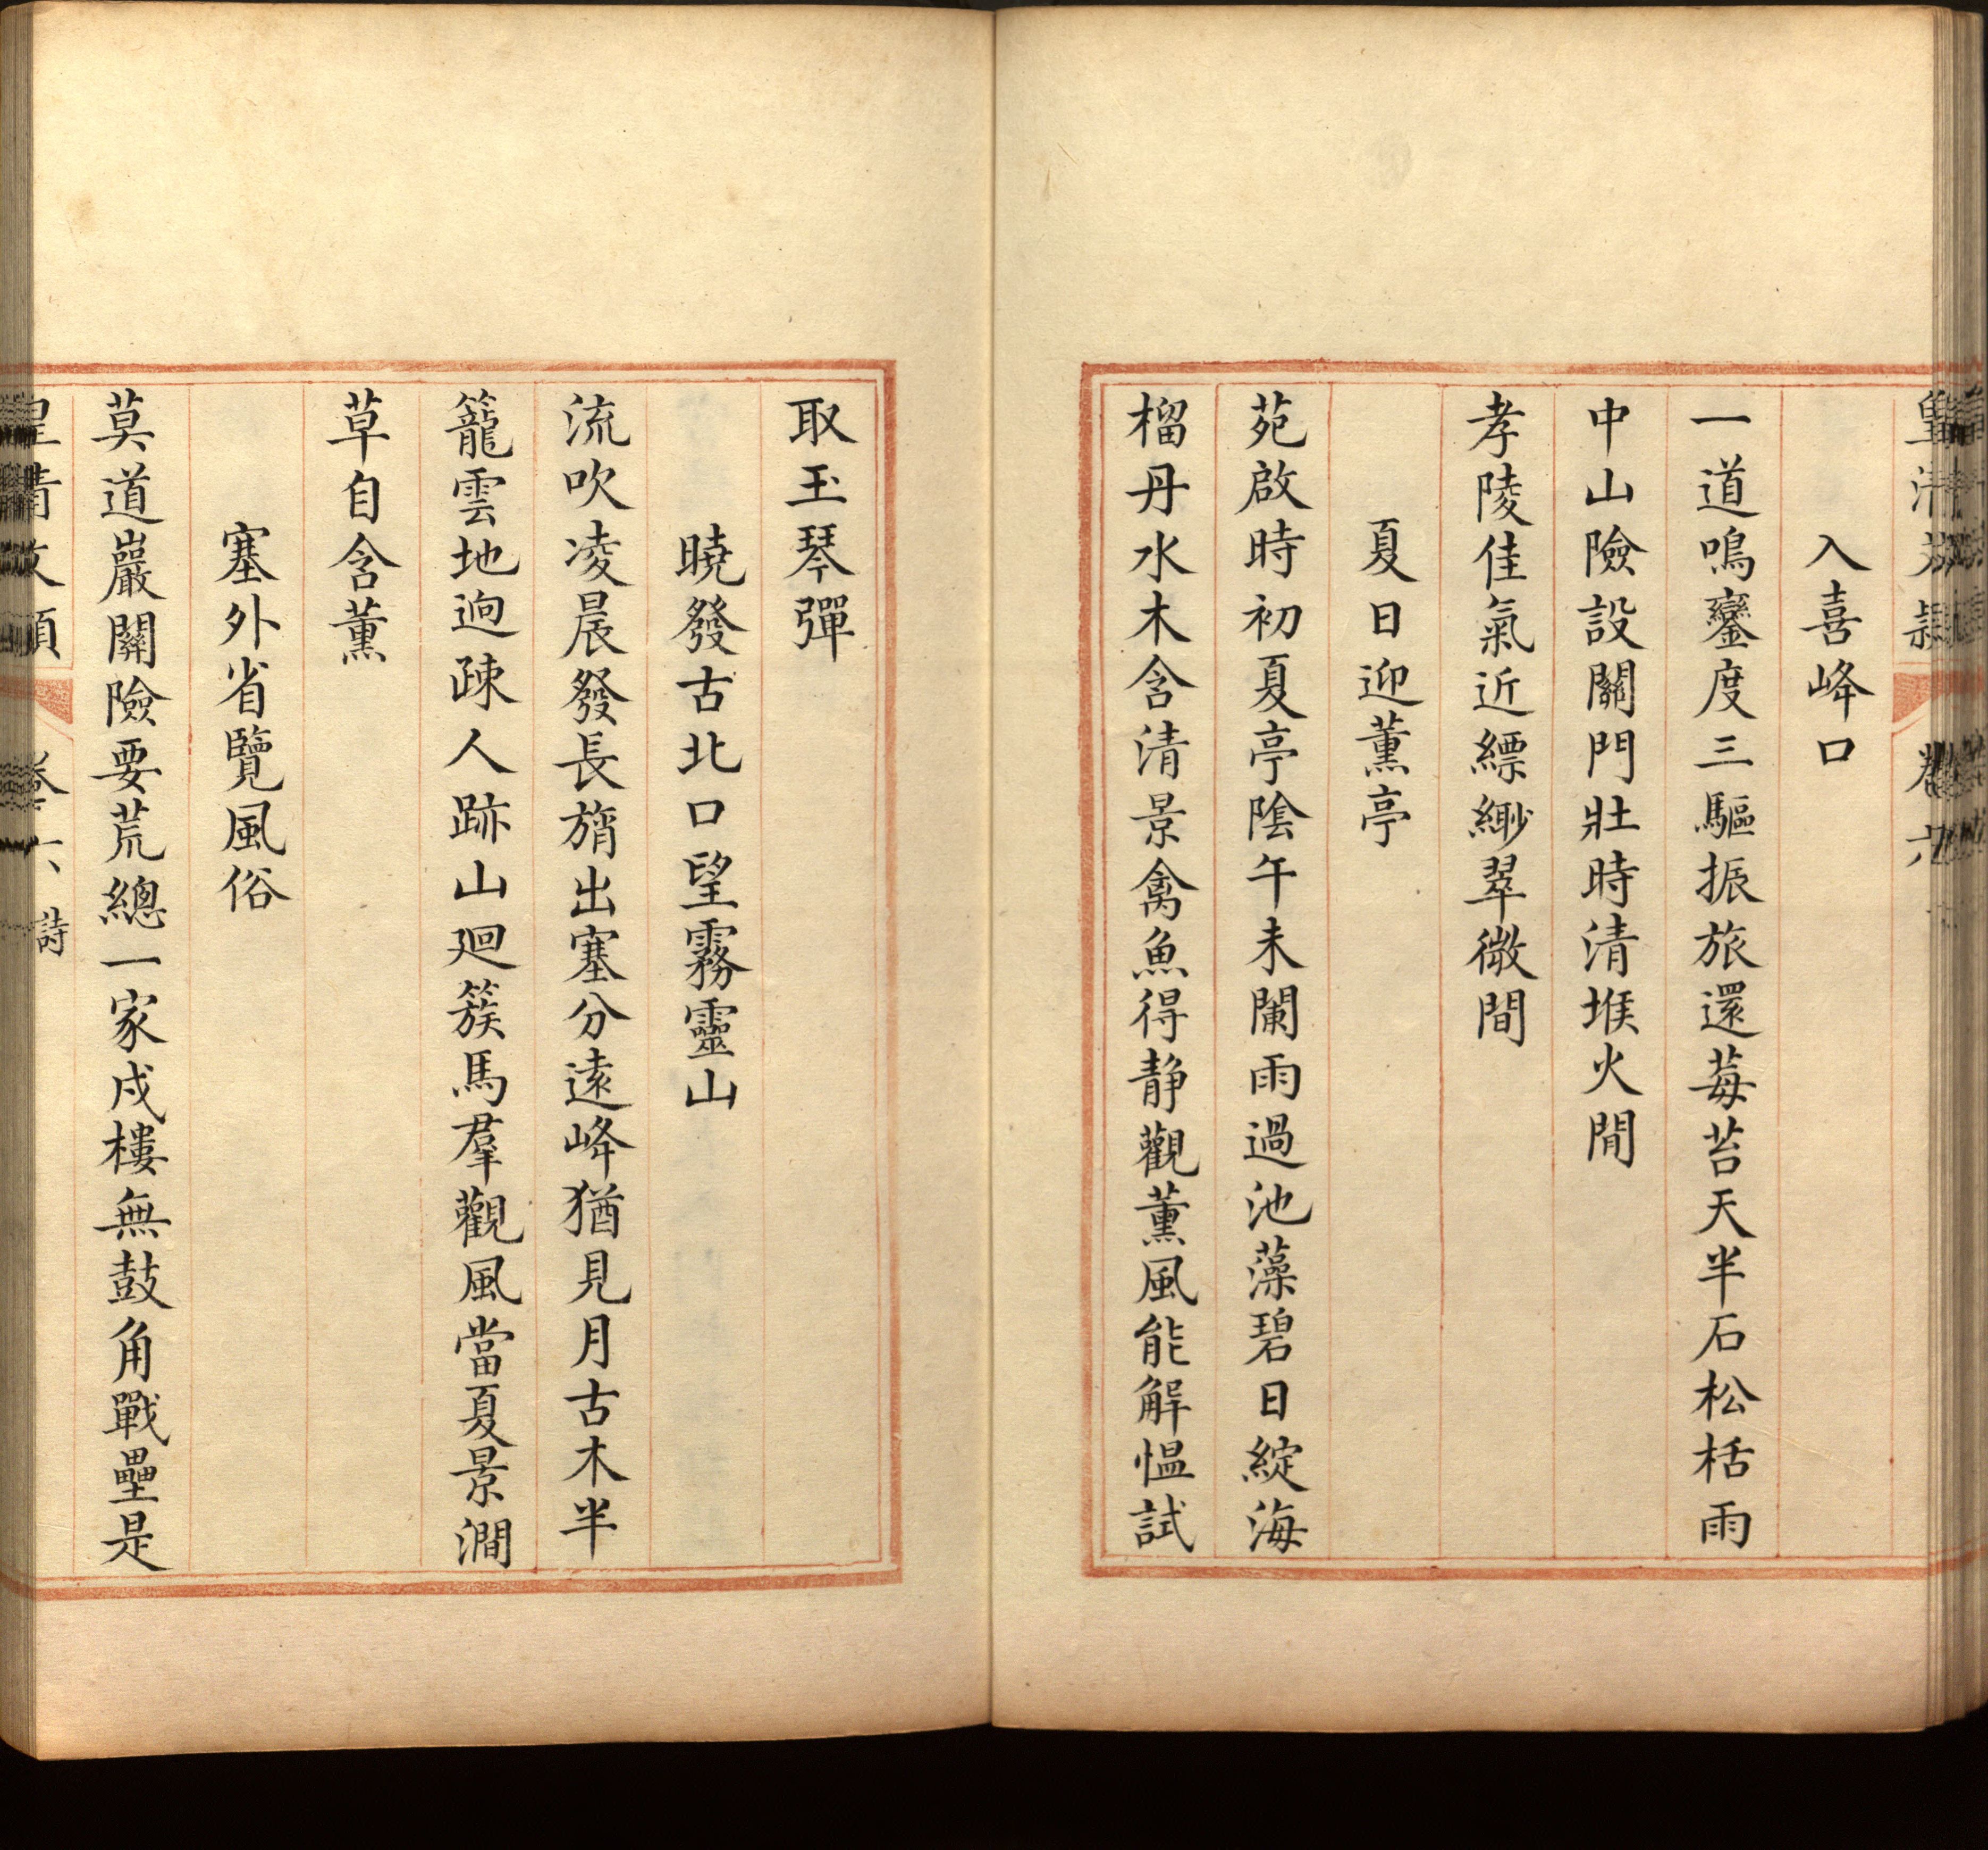 入喜峰口
一道鳴鑾度三驅振旅還莓苔天半石松栝雨
中山險設關門壯時清堠火閒
孝陵佳氣近縹緲翠微間
夏日迎薰亭
苑啟時初夏亭陰午未闌雨過池藻碧日綻海
榴丹水木含清景禽魚得静觀薫風能解愠試
取玉琴彈
曉發古北口望霧靈山
流吹凌晨發長旓出塞分遠峰猶見月古木半
籠雲地逈踈人跡山廻簇馬羣觀風當夏景澗
草自含薫
塞外省覽風俗
莫道巖關險要荒總一家戍樓無鼓角戰壘是
卷六 詩